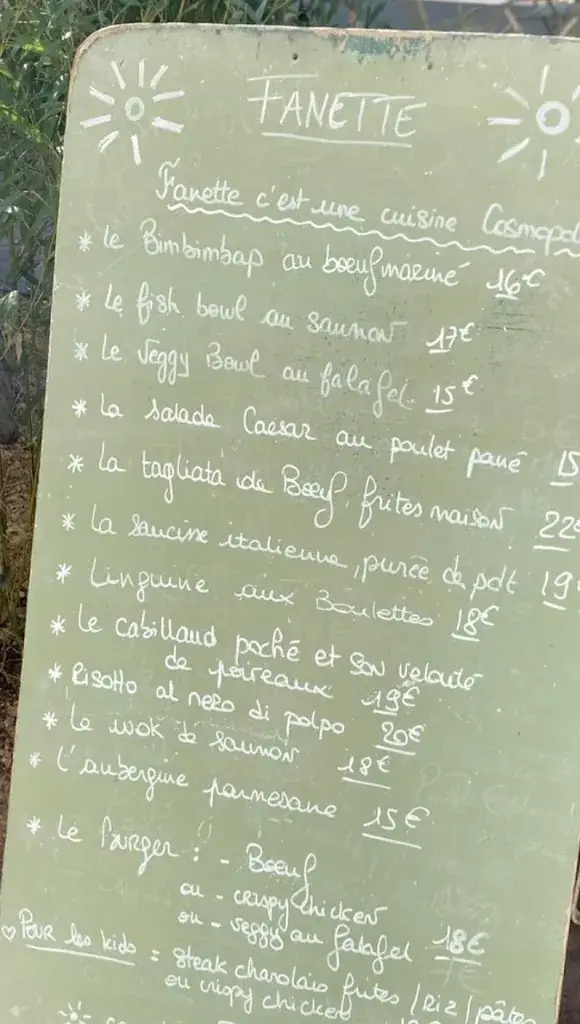 FANETTE
Fanette c'est une cuisine Cosmopol
* Le Bimbimbap au boeuf mariné 16€
* Le fish bowl au saumon 17€
* Le Veggy Bowl au falafel 15€
* La salade Caesar au poulet pané 15
* La tagliata de Boeuf, frites maison 22€
* La saucisse italienne, purée de pdt 19
* Linguine aux Boulettes 18€
* Le cabillaud poché et son velouté
de poireaux 19€
* Risotto al nero di polpo 20€
* Le wok de saumon 18€
* L'aubergine parmesane 15€
* Le Burger : - Boeuf
ou - crispy chicken
ou - veggy au falafel 18€
♡ Pour les kids = steak charolais frites / Riz / pâtes
ou crispy chicken